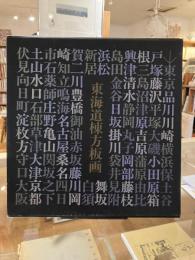 東京品川川崎横浜保土谷
戸塚藤沢平塚大磯小田原箱
根三島沼津原吉原蒲原由比
興津清水静岡丸子岡部藤枝
島田金谷日坂掛川袋井見附
浜松
舞坂
東海道棟方板画
新居
白須
賀二川豊橋御油赤坂藤川岡
崎知立鳴海名古屋桑名四日
市石薬師庄野亀山関坂之下
土山水口石部草津大津京都
伏見向日町淀枚方守口大阪